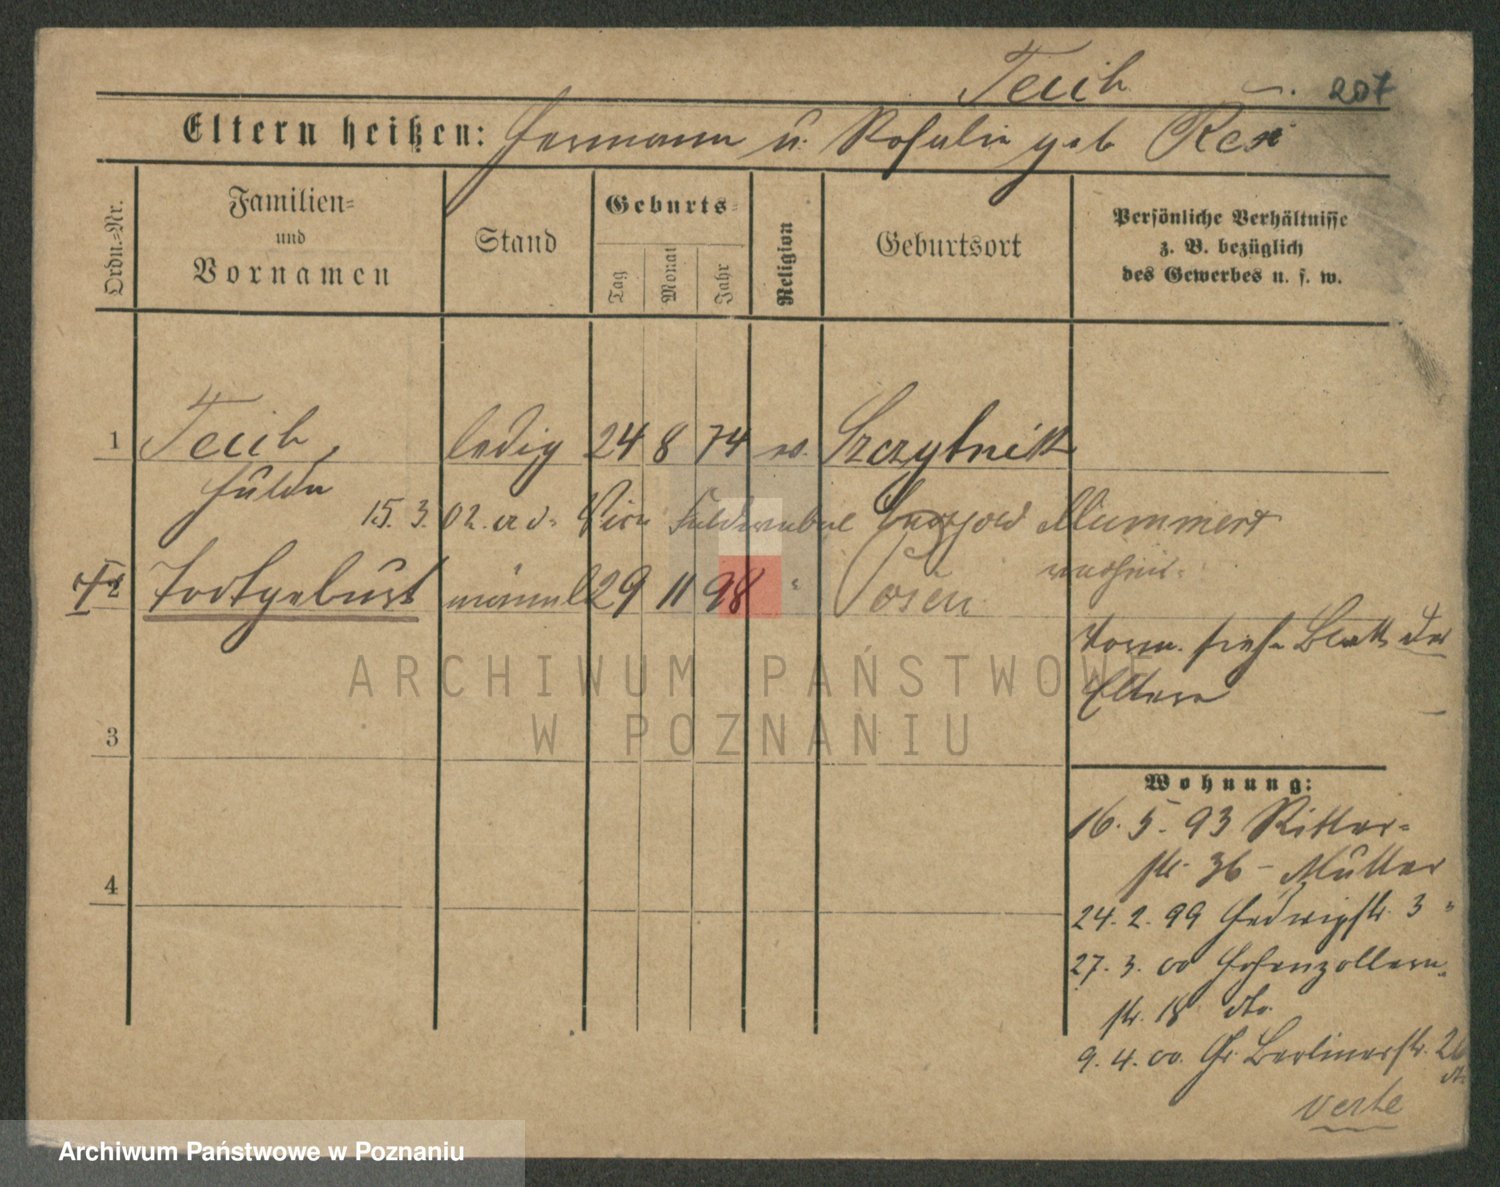 Teich 207
Eltern heißen: Hermann u. Rosalie geb
Ordn.-Nr.
Familien-
und
Vornamen
Stand
Geburts-
Tag
Monat
Jahr
Religion
Geburtsort
Persönliche Verhältnisse
z. B. bezüglich
des Gewerbes u. s. w.
1 Teich, ledig 24 8 74 Szczytnik
Hulda
15. 3. 02. Mummert
2 Todtgeburt männl 29 11 98 " Posen
Vorm. siehe Blatt der
Eltern
3
Wohnung:
16. 5. 93 Ritter-
str. 36 - Mutter
4
24. 2. 99 Hedwigstr. 3 "
27. 3. 00 Hohenzollern-
str. 18 dto.
9. 4. 00. Gr. Berlinerstr.
verte
ARCHIWUM PAŃSTWOWE
W POZNANIU
Archiwum Państwowe w Poznaniu